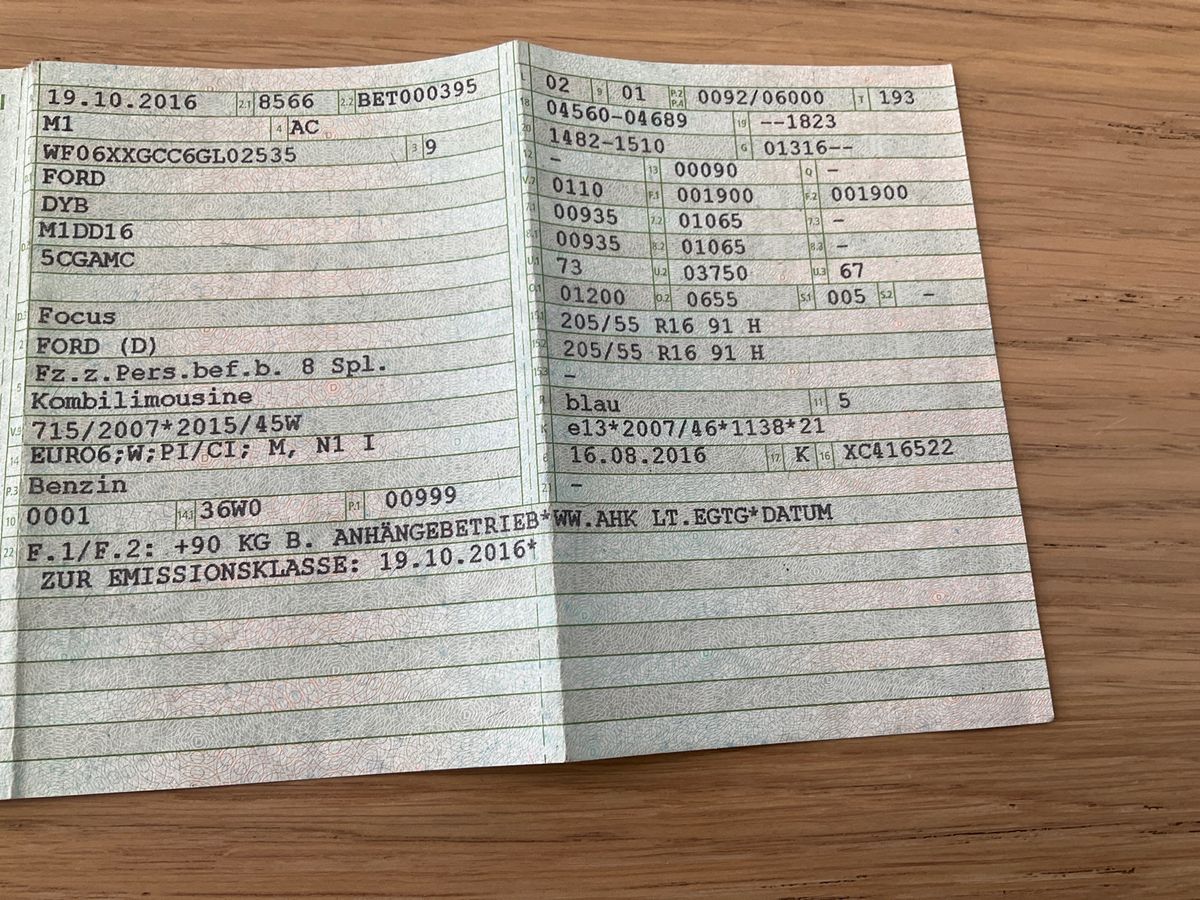 19.10.2016 2.1 8566 2.2 BET000395
M1 4 AC
WF06XXGCC6GL02535 3 9
FORD
DYB
M1DD16
5CGAMC
D.3 Focus
2 FORD (D)
Fz.z.Pers.bef.b. 8 Spl.
5 Kombilimousine
V.9 715/2007*2015/45W
14 EURO6;W;PI/CI; M, N1 I
P.3 Benzin
10 0001 14.1 36W0 P.1 00999
L 02 9 01 P.2 P.4 0092/06000 T 193
18 04560-04689 19 --1823
20 1482-1510 G 01316--
12 - 13 00090 Q -
V.7 0110 F.1 001900 F.2 001900
7.1 00935 7.2 01065 7.3 -
8.1 00935 8.2 01065 8.3 -
U.1 73 U.2 03750 U.3 67
O.1 01200 O.2 0655 S.1 005 S.2 -
15.1 205/55 R16 91 H
15.2 205/55 R16 91 H
15.3 -
R blau 11 5
K e13*2007/46*1138*21
6 16.08.2016 17 K 16 XC416522
21 -
22 F.1/F.2: +90 KG B. ANHÄNGEBETRIEB*WW.AHK LT.EGTG*DATUM
ZUR EMISSIONSKLASSE: 19.10.2016*